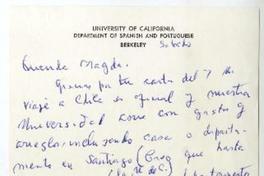 UNIVERSITY OF CALIFORNIA
DEPARTMENT OF SPANISH AND PORTUGUESE
BERKELEY
Sabado
Querida Magda:
Gracias por tu carta del 7. Mi
viaje a Chile es oficial y nuestra
Universidad corre con gastos y
arreglos, incluyendo casa o departa-
mento en Santiago (Creo que hasta